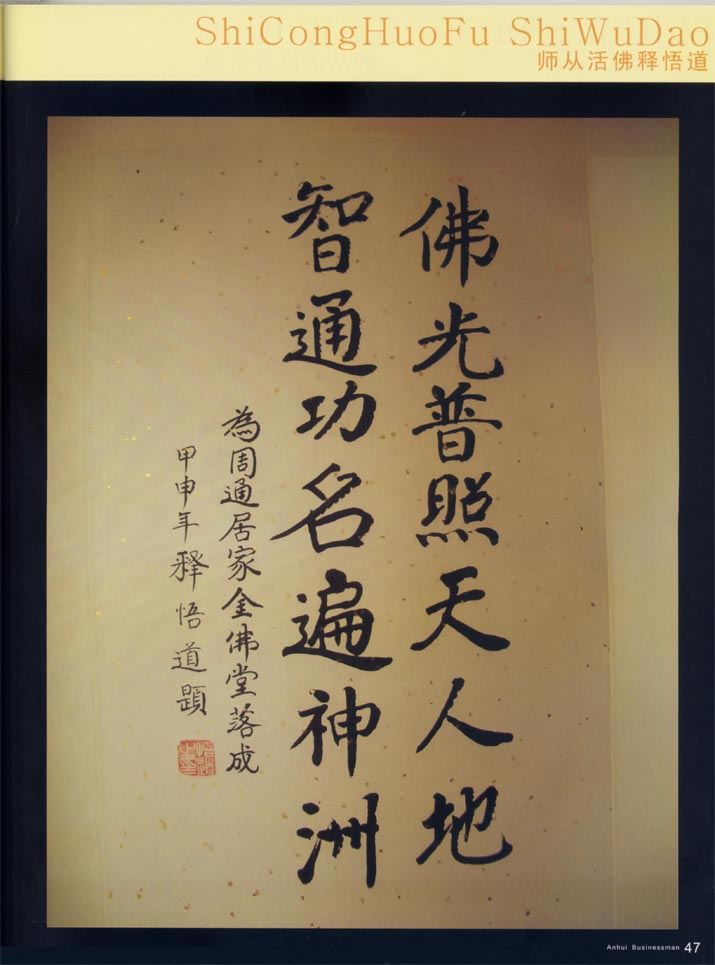 ShiCongHuoFu ShiWuDao
师从活佛释悟道
佛光普照天人地
智通功名遍神洲
為周通居家金佛堂落成
甲申年釋悟道題
Anhui Businessman 47